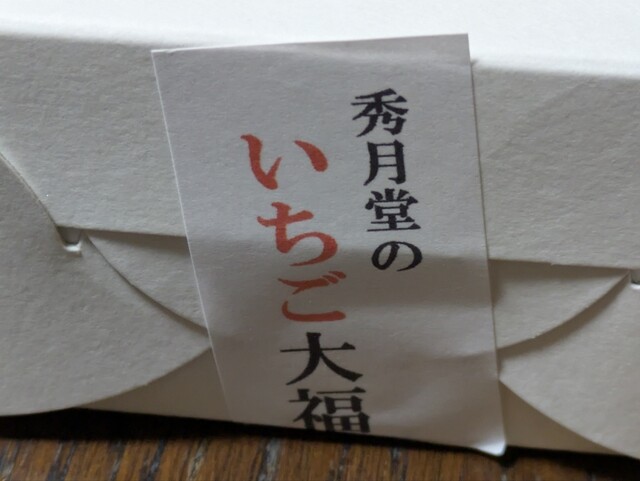 秀月堂の
いちご大福